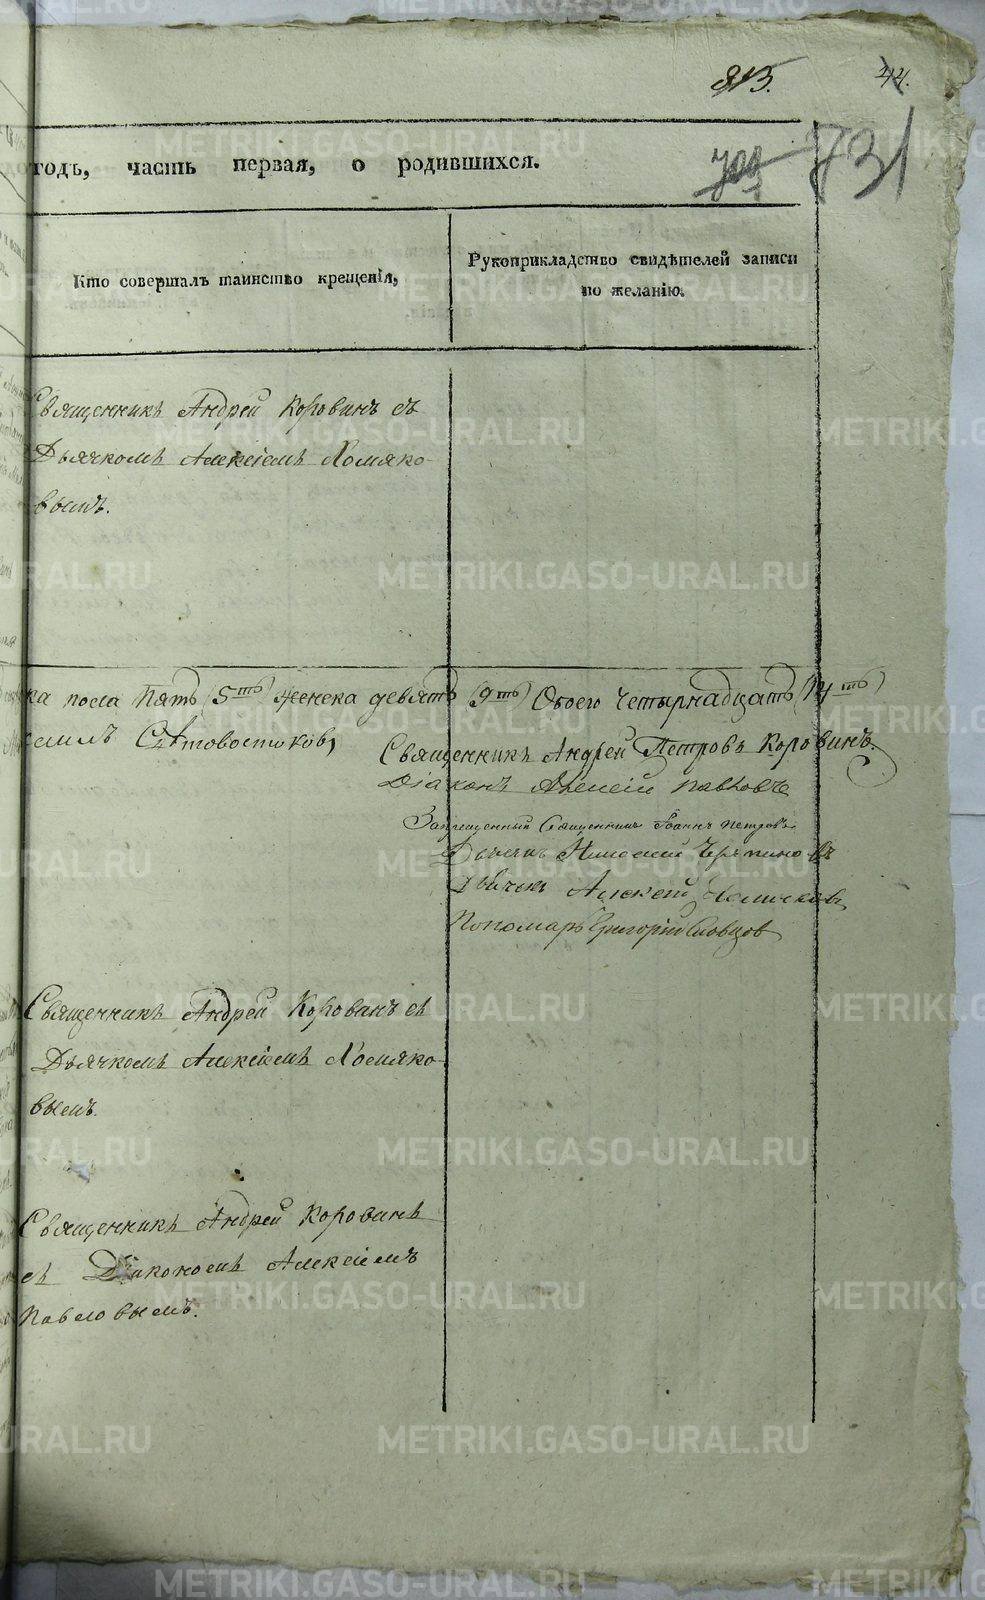 44.
813.
731
годъ, часть первая, о родившихся.
Кто совершалъ таинство крещенія,
Рукоприкладство свидѣтелей записи
по желанію.
Священникъ Андрей Коровинъ съ
Дьячкомъ Алексіемъ Хомяко-
вымъ.
ка пола Пять (5ть) женска девять (9ть) Обоего Четырнадцать (14ть)
Святовостоковъ
Священникъ Андрей Петровъ Коровинъ.
Діаконъ Алексій Павловъ
Запрещенный Священникъ Іоаннъ Петровъ
Дьячекъ
Дьячекъ Алексей Хомяковъ
Пономарь Григорій Словцовъ
Священникъ Андрей Коровинъ съ
Дьячкомъ Алексіемъ Хомяко-
вымъ.
Священникъ Андрей Коровинъ
съ Діакономъ Алексіемъ
Павловымъ.
METRIKI.GASO-URAL.RU